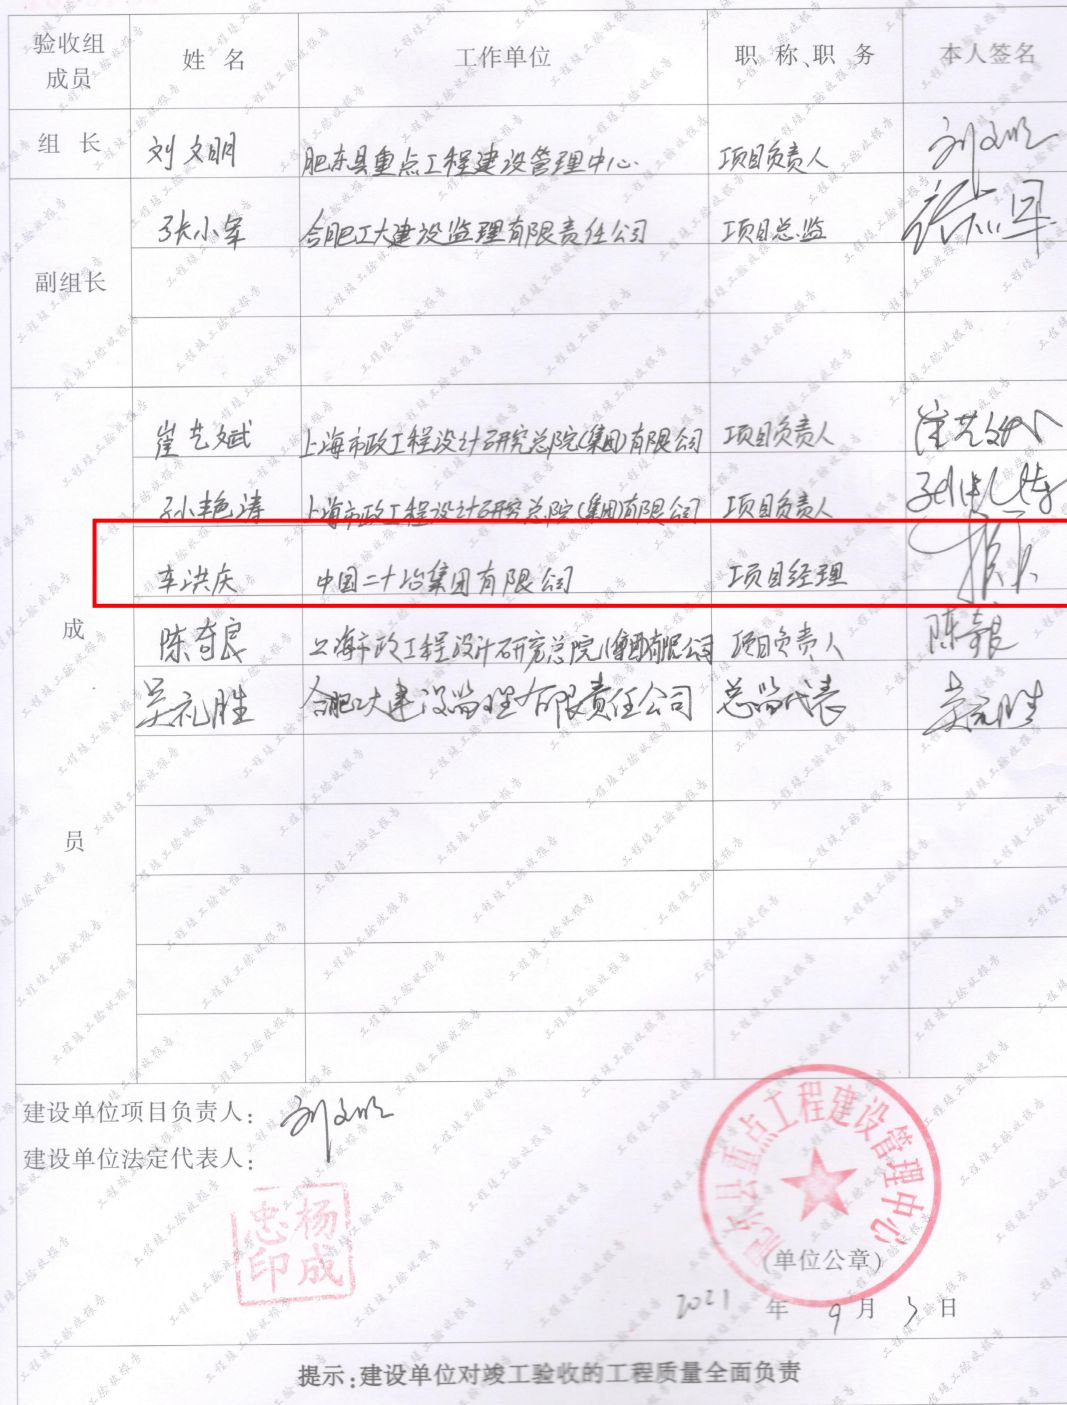 验收组
成员
姓 名
工作单位
职 称、职 务
本人签名
组 长
刘文明
肥东县重点工程建设管理中心
项目负责人
刘文明
副组长
张小军
合肥工大建设监理有限责任公司
项目总监
张小军
成
员
崔艺斌
上海市政工程设计研究总院(集团)有限公司
项目负责人
孙艳涛
上海市政工程设计研究总院(集团)有限公司
项目负责人
车洪庆
中国二十冶集团有限公司
项目经理
陈奇良
上海市政工程设计研究总院(集团)有限公司
项目负责人
吴礼胜
合肥工大建设监理有限责任公司
总监代表
吴礼胜
建设单位项目负责人:
刘文明
建设单位法定代表人:
杨成忠印
肥东县重点工程建设管理中心
(单位公章)
2021 年 9 月 3 日
提示:建设单位对竣工验收的工程质量全面负责
工程竣工验收报告